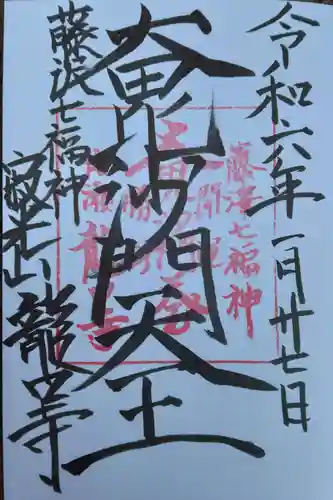 令和六年一月廿七日
大毘沙門天王
藤沢七福神
寂光山龍口寺
藤澤七福神
開運
片瀬龍口寺